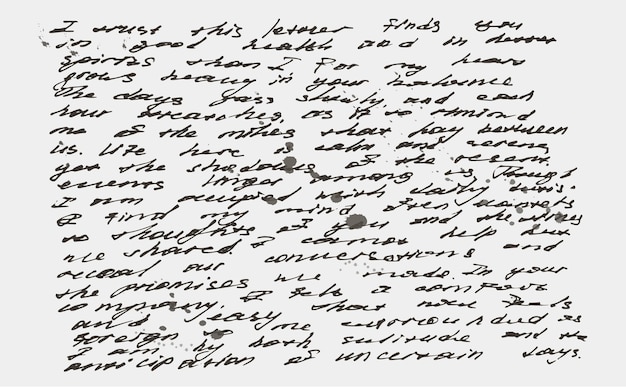 I trust this letter finds you
in good health and in better
spirits than I for my heart
grows heavy in your absence
The days pass slowly, and each
hour stretches, as if to remind
me of the miles that lay between
us. Life here is calm and serene,
yet the shadows of the recent
events linger among us, Though
I am occupied with daily
I find my mind often wanders
to thoughts of you and the
we shared. I cannot help but
recall our conversations and
the promises we made. In your
company. I felt a comfort
and easy that now feels
foreign to me surrounded as
I am by both solitude and the
anticipation of uncertain days.